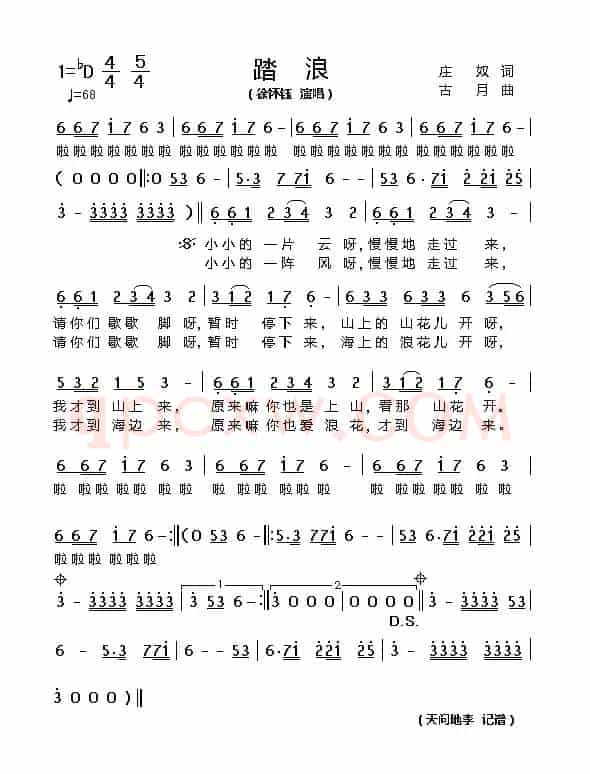 1=♭D 4/4 5/4 踏 浪 庄 奴 词
♩=68 (徐怀钰 演唱) 古 月 曲
6 6 7 i 7 6 3 | 6 6 7 i 7 6 - | 6 6 7 i 7 6 3 | 6 6 7 i 7 6 - |
啦啦啦啦啦啦啦 啦啦啦啦啦啦 啦啦啦啦啦啦啦 啦啦啦啦啦啦
( 0 0 0 0 ‖: 0 53 6 - | 5·3 77i 6 - | 53 6·7i 2 22i 25 |
3 - 3333 3333 )‖ 6 6 1 2 34 3 2 | 6 6 1 2 34 3 - |
:S: 小小的 一片 云 呀,慢慢地 走过 来,
小小的 一阵 风 呀,慢慢地 走过 来,
6 6 1 2 34 3 2 | 3 12 1 7 6 - |
请你们 歇歇 脚 呀,暂时 停下 来, 山上的 山花儿 开呀,
请你们 歇歇 脚 呀,暂时 停下 来, 海上的 浪花儿 开呀,
532 1 5 3 -
我才到 山上 来, 原来嘛 你也是 上 山,看那 山花 开。
我才到 海边 来, 原来嘛 你也爱 浪 花,才到 海边 来。
6 6 7 i 7 6 3 | 6 6 7 i 7 6 - | 6 6 7 i 7 6 3 |
啦 啦啦 啦啦 啦啦 啦 啦啦 啦啦啦 啦 啦啦 啦啦 啦啦
6 6 7 i 7 6 - :‖ (0 53 6 - :‖: 5·3 77i 6 - - | 53 6·7i 2 22i 25 |
啦啦啦 啦啦啦
3 - 3333 3333 | 1 3 53 6 - :‖ 2 3 0 0 0 | 0 0 0 0 ‖ 3 - 3333 3333 53 |
D.S.
6 - 5·3 77i | 6 - 53 6·7i | 2 22i 25 | 3 - 3333 3333 |
3 0 0 0 )‖
(天问地李 记谱)
qpcxw.COM